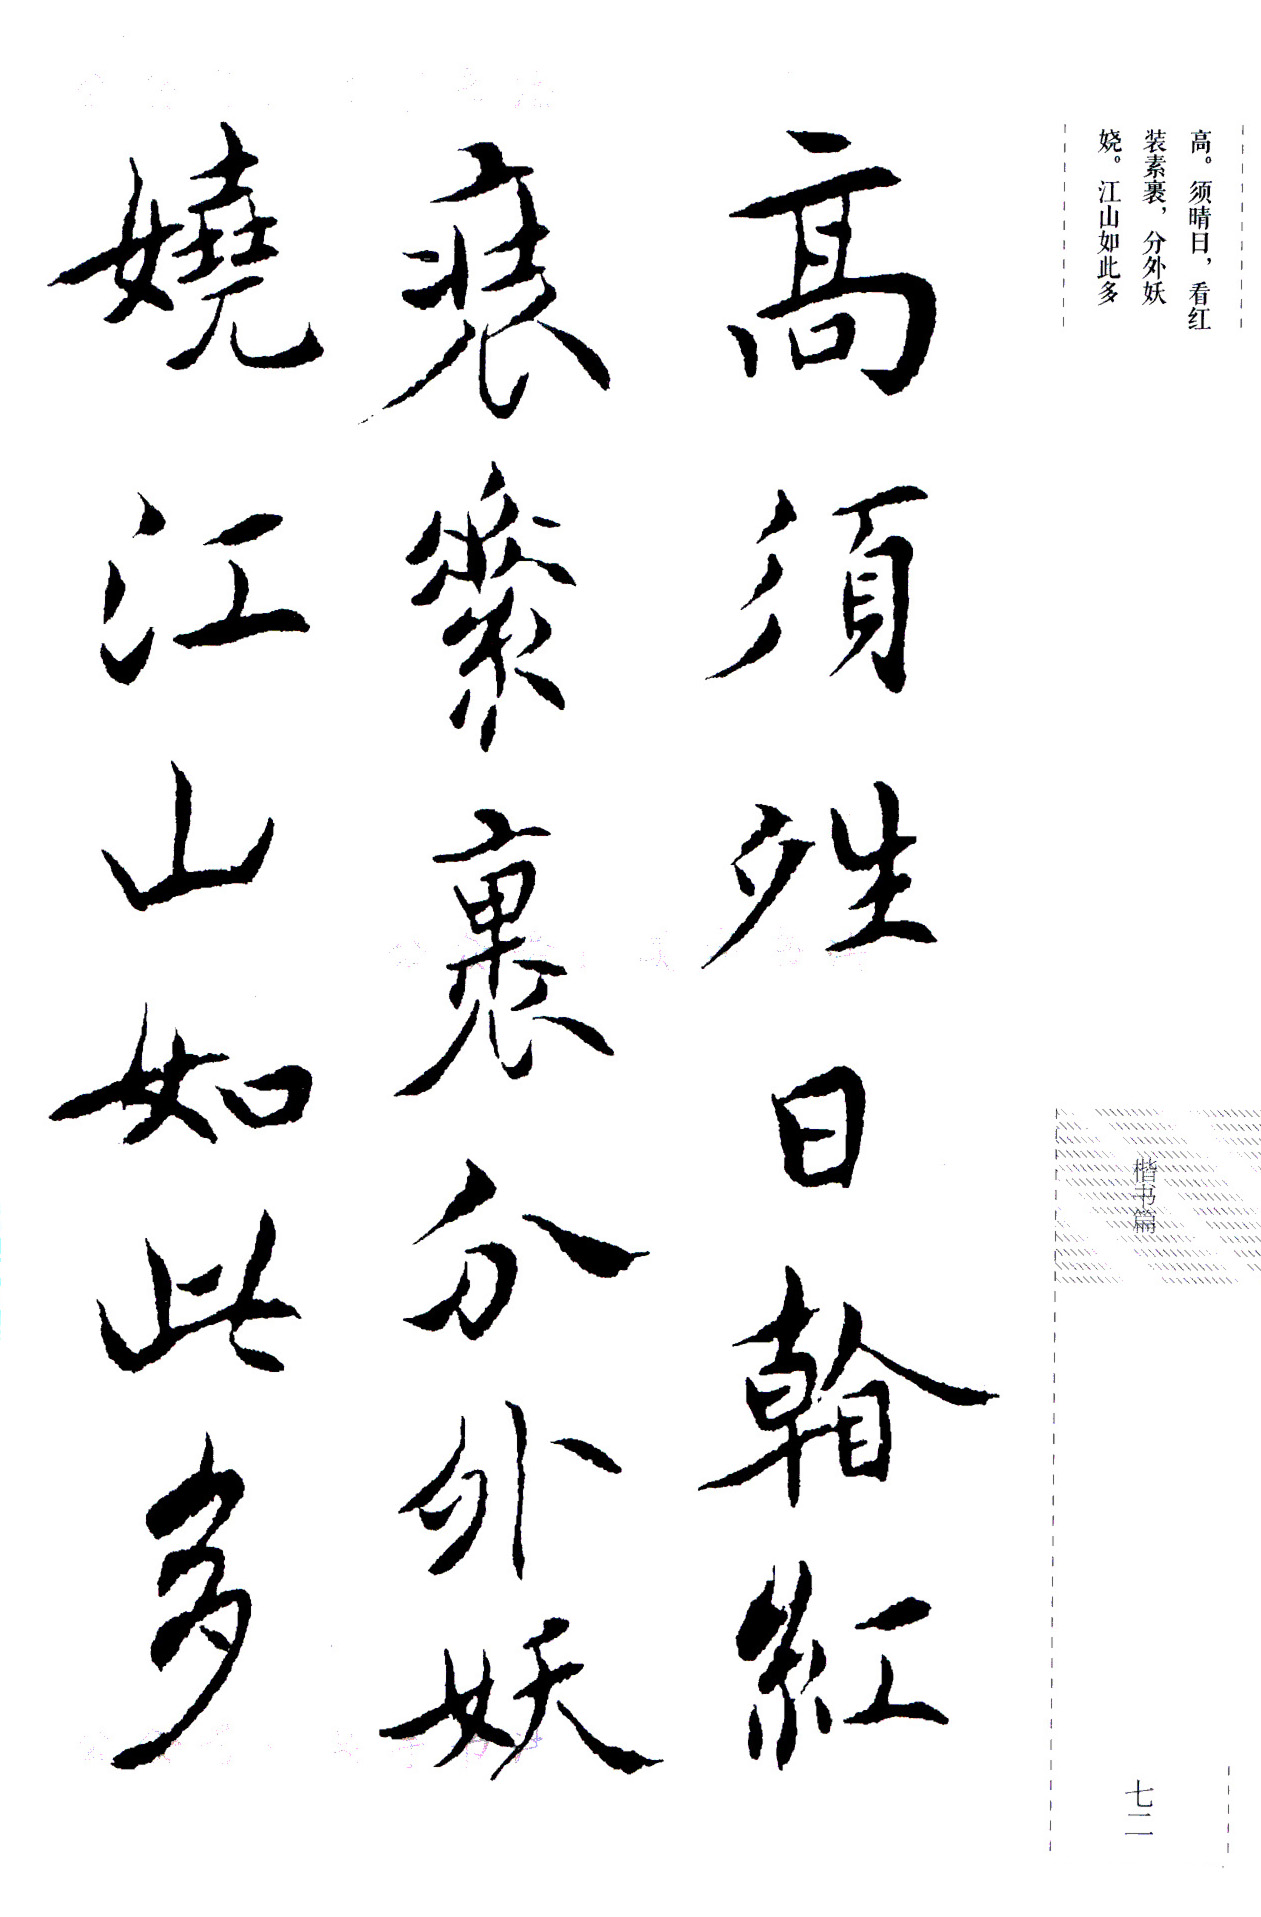 高。须晴日，看红
装素裹，分外妖
娆。江山如此多
高須夝日看紅
裝素裹分外妖
嬈江山如此多
楷书篇
七二